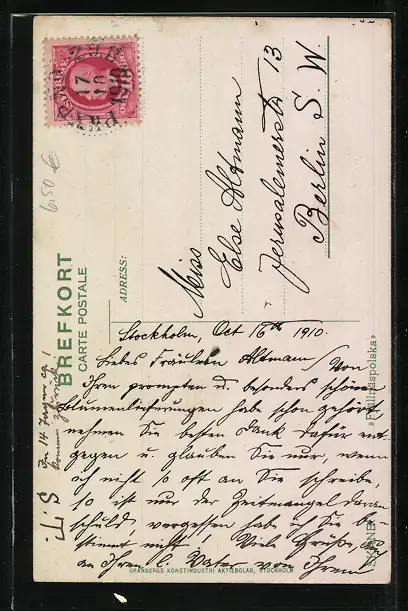 BREFKORT
CARTE POSTALE
ADRESS:
Miss
Else Altmann
Jerusalemerstr 13
Berlin S. W.
6.50 €
Stockholm, Oct 16th 1910.
Liebes Fräulein Altmann! Von
Ihren prompten u. besonders schönen
Blumenlieferungen habe schon gehört
nehmen Sie besten Dank dafür ent-
gegen u. glauben Sie nur, wenn
ich nicht so oft an Sie schreibe,
so ist nur der Zeitmangel daran
schuld, vergessen habe ich Sie be-
stimmt nicht! Viele Grüße, 
an Ihren l. Vater von Ihrem
In 14 Tagen ca!
komme zurück!
GRANBERGS KONSTINDUSTRI AKTIEBOLAG, STOCKHOLM